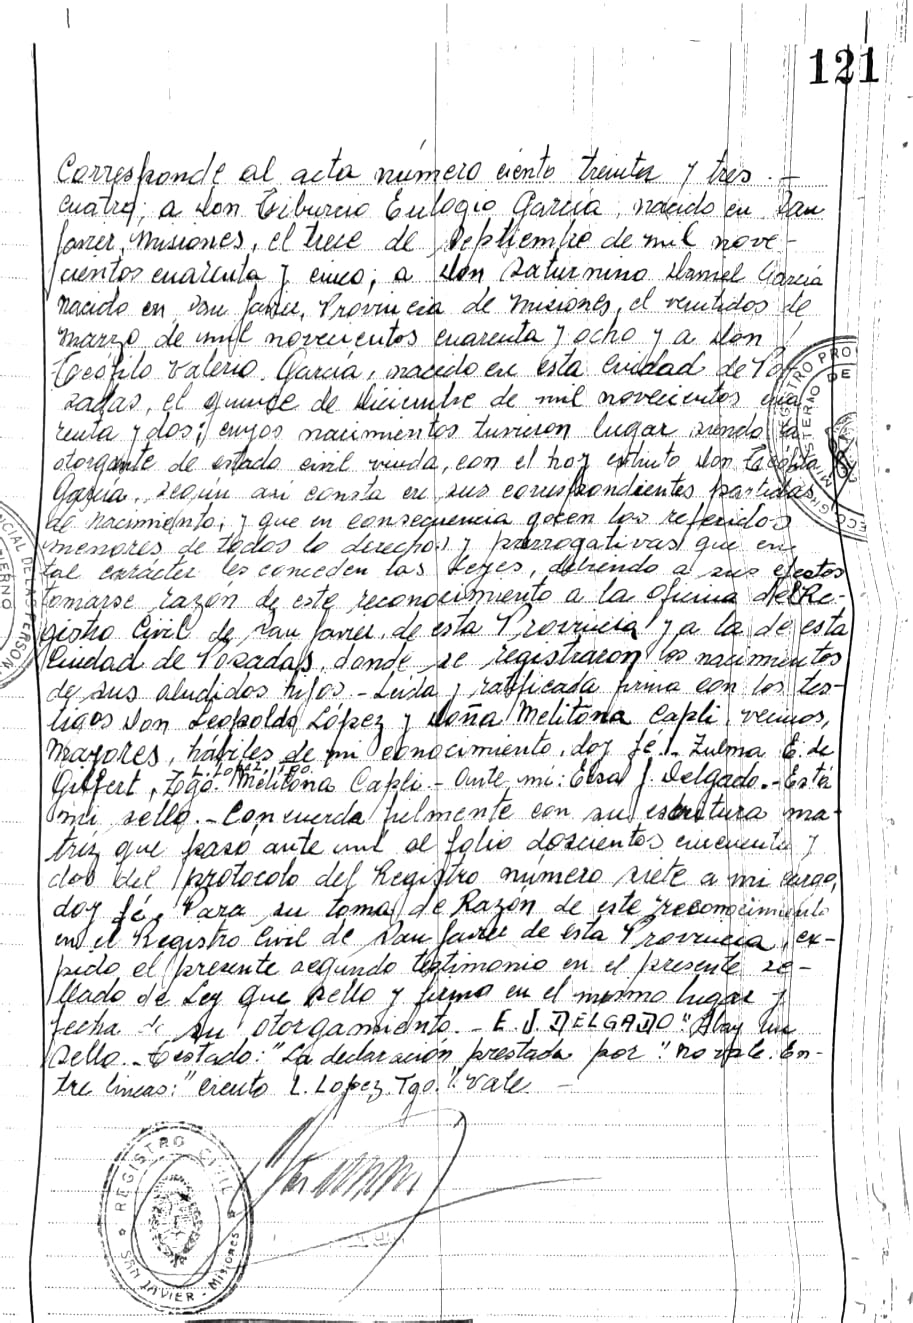 121
Corresponde al acta número ciento treinta y tres.-
cuatro; a don Tiburcio Eulogio García, nacido en San
Javier, Misiones, el trece de Septiembre de mil nove-
cientos cuarenta y cinco; a don Saturnino Daniel García
nacido en San Javier, Provincia de Misiones, el veintidos de
Marzo de mil novecientos cuarenta y ocho y a don
Teófilo Valerio García, nacido en esta Ciudad de Po-
sadas, el quince de Diciembre de mil novecientos cua
renta y dos; cuyos nacimientos tuvieron lugar siendo la
otorgante de estado civil viuda, con el hoy extinto don Teófilo
García, según así consta en sus correspondientes partidas
de nacimiento; y que en consecuencia gocen los referidos
menores de todos lo derechos y prerrogativas que en
tal carácter les conceden las Leyes, debiendo a sus efectos
tomarse razón de este reconocimiento a la oficina del Re-
gistro Civil de San Javier, de esta Provincia y a la de esta
Ciudad de Posadas, donde se registraron los nacimientos
de sus aludidos hijos.- Leída y ratificada firma con los tes-
tigos Don Leopoldo López y Doña Melitona Capli, vecinos,
mayores, hábiles de mi conocimiento, doy fé.- Zulma E. de
L. López. Tgo.
Gilfert, Tgo. Melitona Capli.- Ante mi: Elsa J. Delgado.- Está
mi sello.- Concuerda fielmente con su escritura ma-
tríz que pasó ante mi al folio doscientos cincuenta y
dos del protocolo del Registro número siete a mi cargo,
doy fé, Para su toma de Razón de este reconocimiento
en el Registro Civil de San Javier de esta Provincia, ex-
pido el presente segundo testimonio en el presente se-
llado de Ley que sello y firmo en el mismo lugar y
fecha de su otorgamiento.- E. J. DELGADO." Hay un
sello.- Testado: "La declaración prestada por": no vale. En-
tre lineas: "ciento L. Lopez. Tgo.": Vale.-
REGISTRO CIVIL
SAN JAVIER - MISIONES